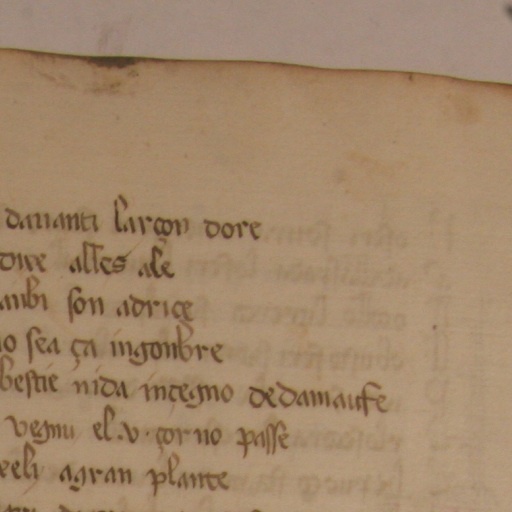 dauanti l'arçon dore
dire alles ale
aibi son adrice
no sea ça ingonbre
bestie nida integno dedamaufe
vegnu el .v. çorno passe
agran plante